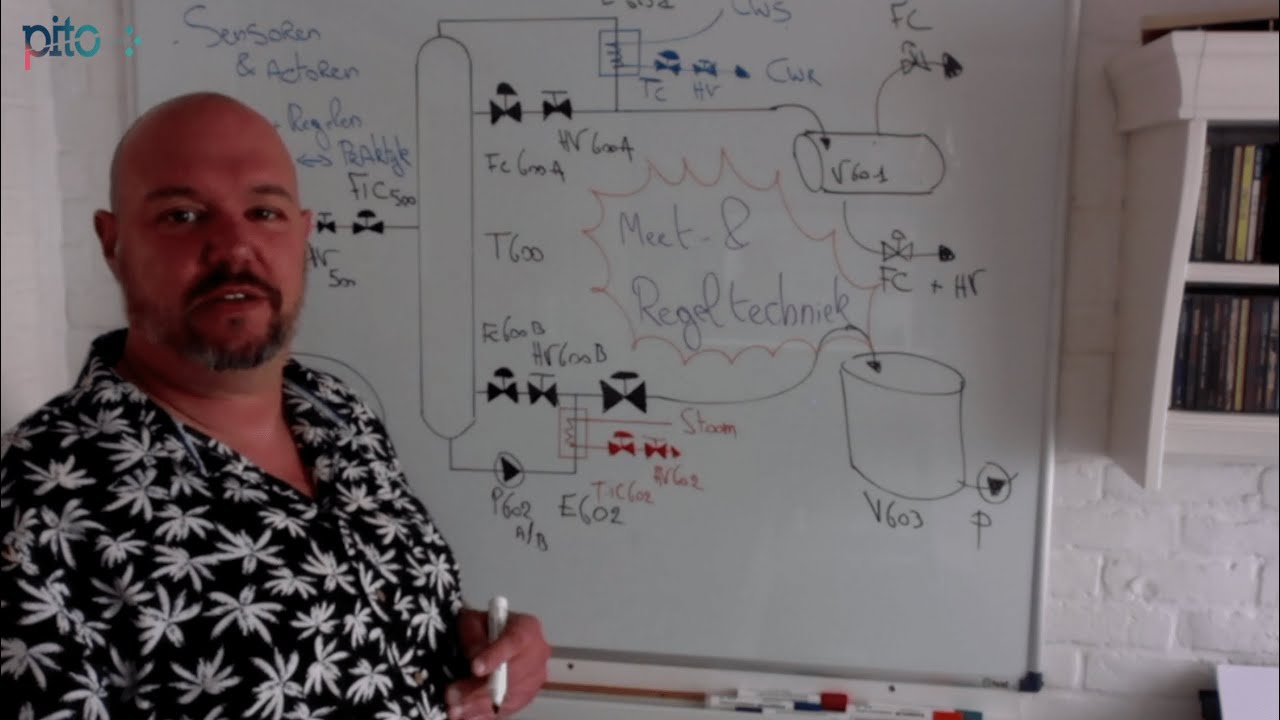 pito
Sensoren
& Actoren
Regelen
↔ Praktijk
FIC500
HV
500
CWS
TC HV
CWR
FC
HV600A
FC600A
V601
T600
Meet- &
Regeltechniek
FC + HV
FC600B
HV600B
Stoom
TIC602
HV602
P602
A/B
E602
V603
P